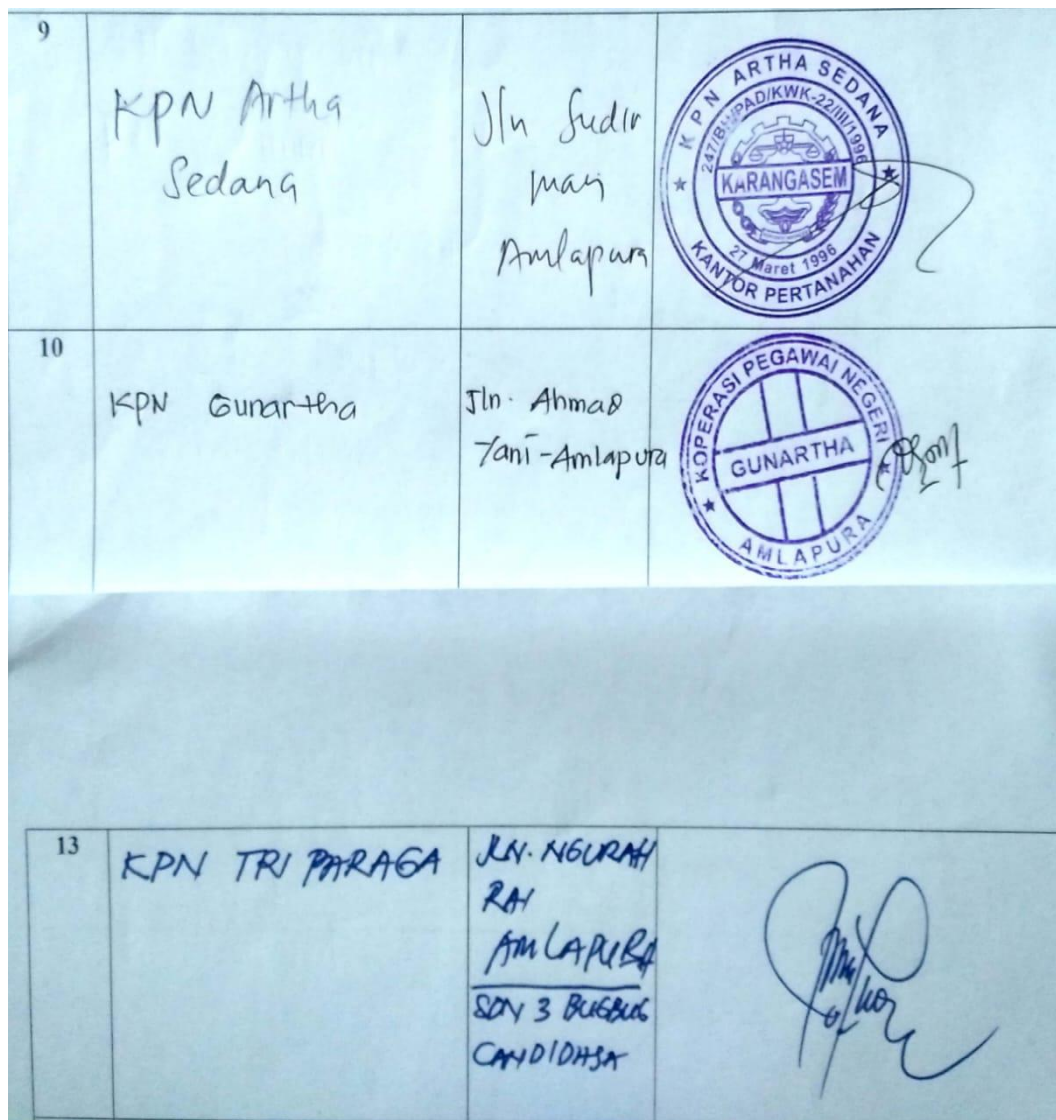 9
KPN Artha
Sedana
Jln Sudir
man
Amlapura
KPN ARTHA SEDANA
247/BH/PAD/KWK-22/III/1996
KARANGASEM
27 Maret 1996
KANTOR PERTANAHAN
10
KPN Gunartha
Jln. Ahmad
Yani-Amlapura
KOPERASI PEGAWAI NEGERI
GUNARTHA
AMLAPURA
13
KPN TRI PARAGA
JLN. NGURAH
RAI
AMLAPURA
SDN 3 BUGBUG
CANDIDASA